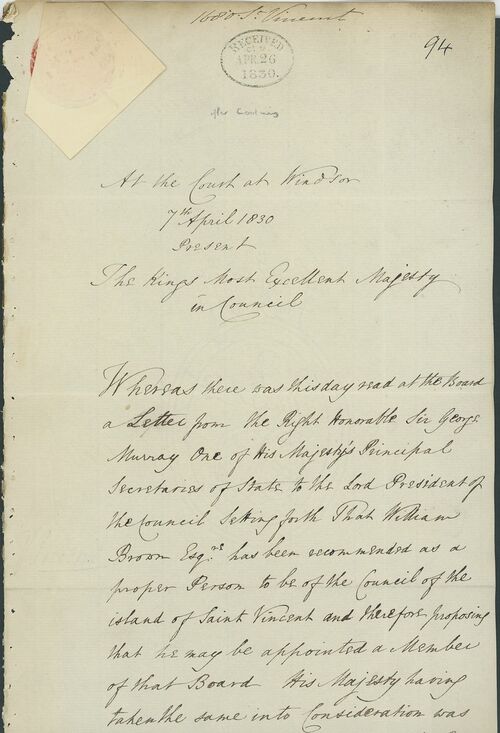 1680 St. Vincent
RECEIVED
APR. 26
1830.
94
At the Court at Windsor
7th April 1830
Present
The Kings Most Excellent Majesty
in Council
Whereas there was this day read at the Board
a Letter from the Right Honorable Sir George
Murray One of His Majesty's Principal
Secretaries of State to the Lord President of
the Council Setting forth That William
Brown Esqre. has been recommended as a
proper Person to be of the Council of the
island of Saint Vincent and therefore proposing
that he may be appointed a Member
of that Board His Majesty having
taken the same into Consideration was